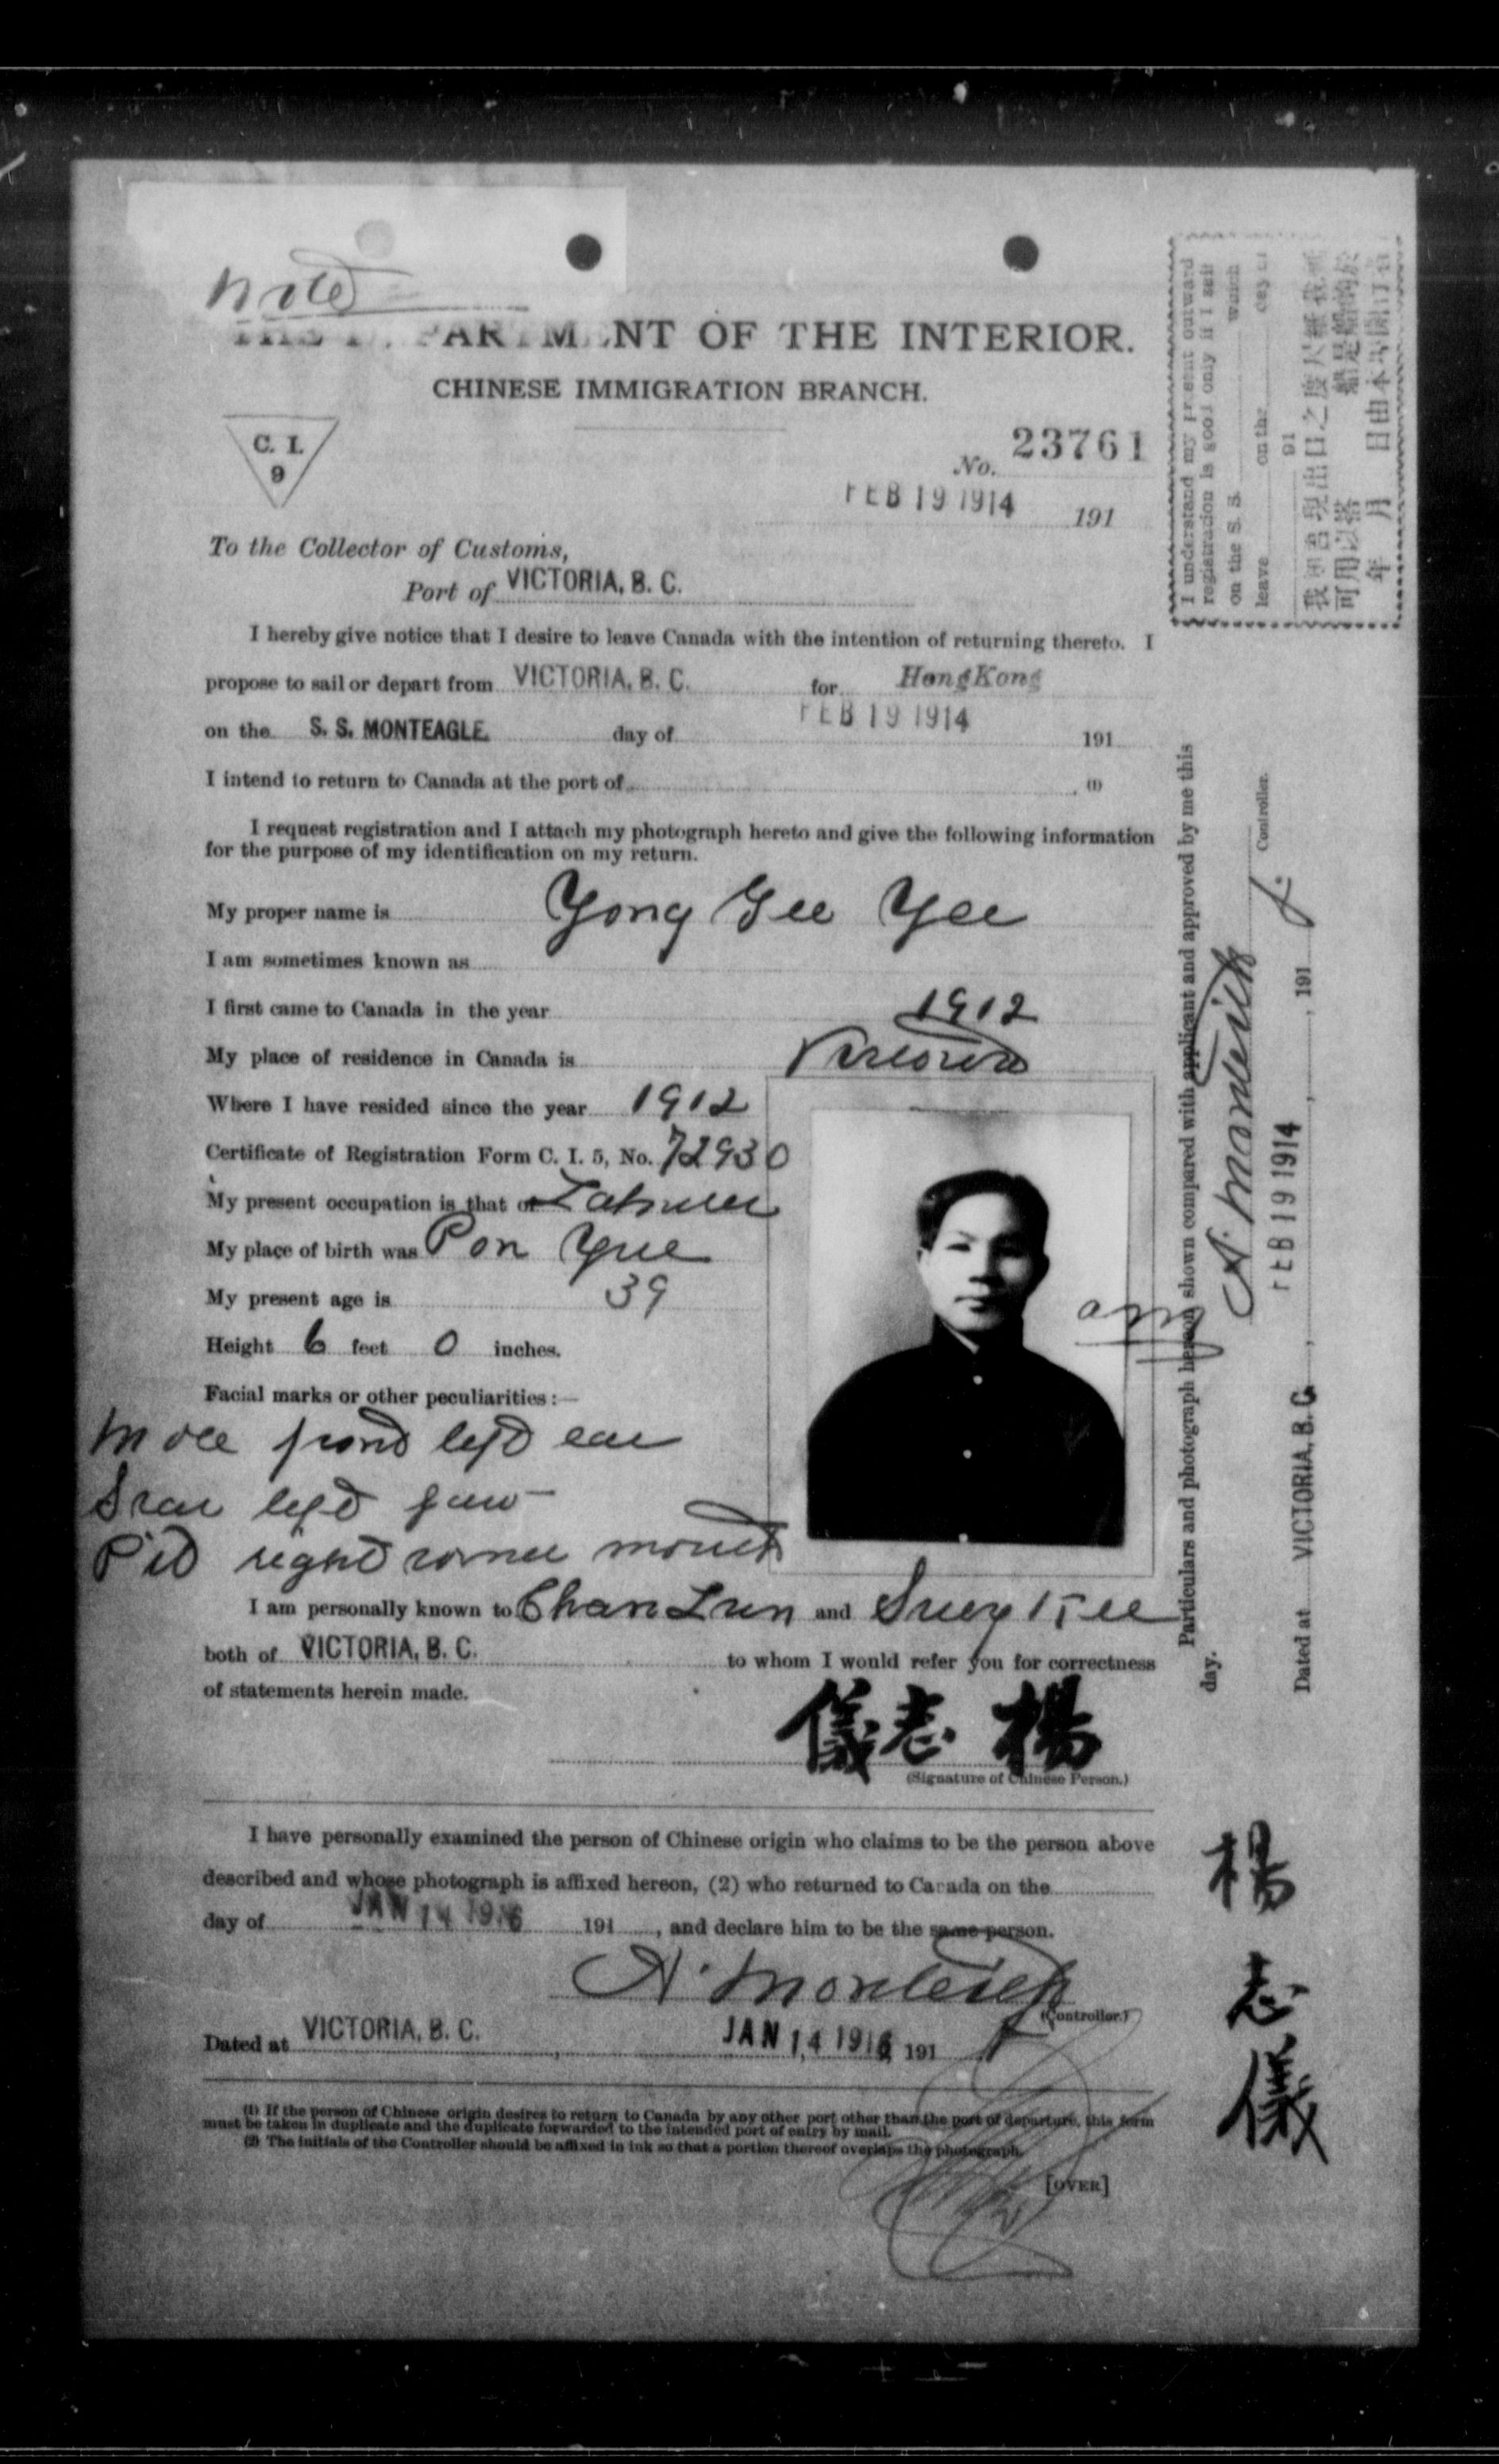 Noted
THE DEPARTMENT OF THE INTERIOR.
CHINESE IMMIGRATION BRANCH.
C. I.
9
No. 23761
FEB 19 1914 191
To the Collector of Customs,
Port of VICTORIA, B. C.
I hereby give notice that I desire to leave Canada with the intention of returning thereto. I
propose to sail or depart from VICTORIA, B. C. for HongKong
on the S. S. MONTEAGLE day of FEB 19 1914 191
I intend to return to Canada at the port of (1)
I request registration and I attach my photograph hereto and give the following information
for the purpose of my identification on my return.
My proper name is Yong Gee Yee
I am sometimes known as
I first came to Canada in the year 1912
My place of residence in Canada is Victoria
Where I have resided since the year 1912
Certificate of Registration Form C. I. 5, No. 72930
My present occupation is that of Labourer
My place of birth was Pon Yue
My present age is 39
Height 6 feet 0 inches.
Facial marks or other peculiarities:—
Mole front left ear
Scar left jaw
Pit right corner mouth
I am personally known to Chan Lun and Suey Kee
both of VICTORIA, B. C. to whom I would refer you for correctness
of statements herein made.
儀志楊
(Signature of Chinese Person.)
I have personally examined the person of Chinese origin who claims to be the person above
described and whose photograph is affixed hereon, (2) who returned to Canada on the
day of JAN 14 1916 191 , and declare him to be the same person.
A. Monteith
(Controller.)
Dated at VICTORIA, B. C. JAN 14 1916 191
(1) If the person of Chinese origin desires to return to Canada by any other port other than the port of departure, this form
must be taken in duplicate and the duplicate forwarded to the intended port of entry by mail.
(2) The initials of the Controller should be affixed in ink so that a portion thereof overlaps the photograph.
[OVER]
I understand my present outward
registration is good only if I sail
on the S. S. which
leave on the day of
191
Particulars and photograph hereon shown compared with applicant and approved by me this
day.
A. Monteith
Controller.
Dated at VICTORIA, B. C. , FEB 19 1914 , 191
楊
志
儀